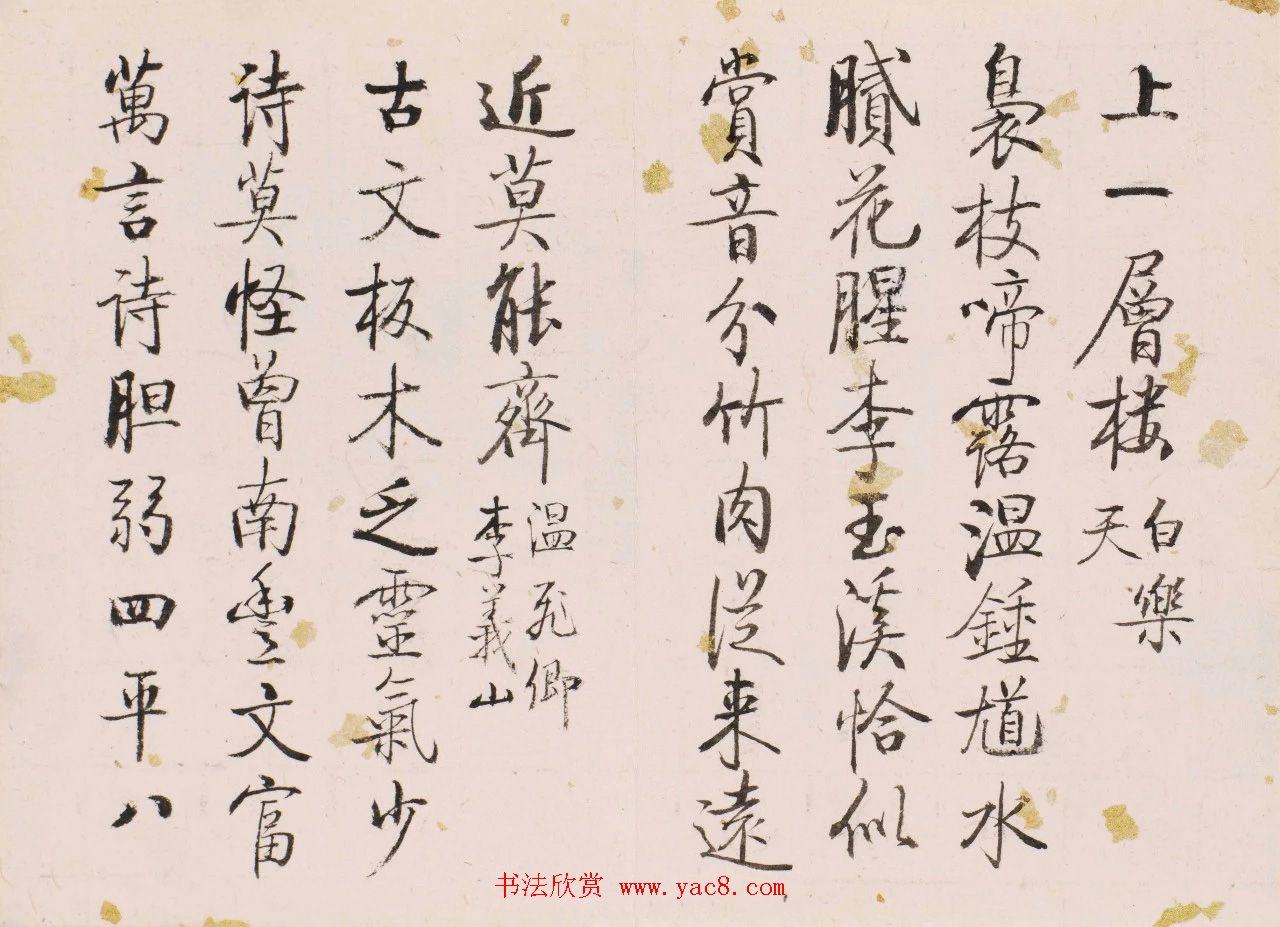 上一層樓
白樂
天
裊枝啼露温鍾馗水
膩花腥李玉溪恰似
賞音分竹肉從来遠
近莫能齊
温飛卿
李義山
古文板木乏靈氣少
詩莫怪曾南豐文富
萬言詩胆弱四平八
书法欣赏 www.yac8.com